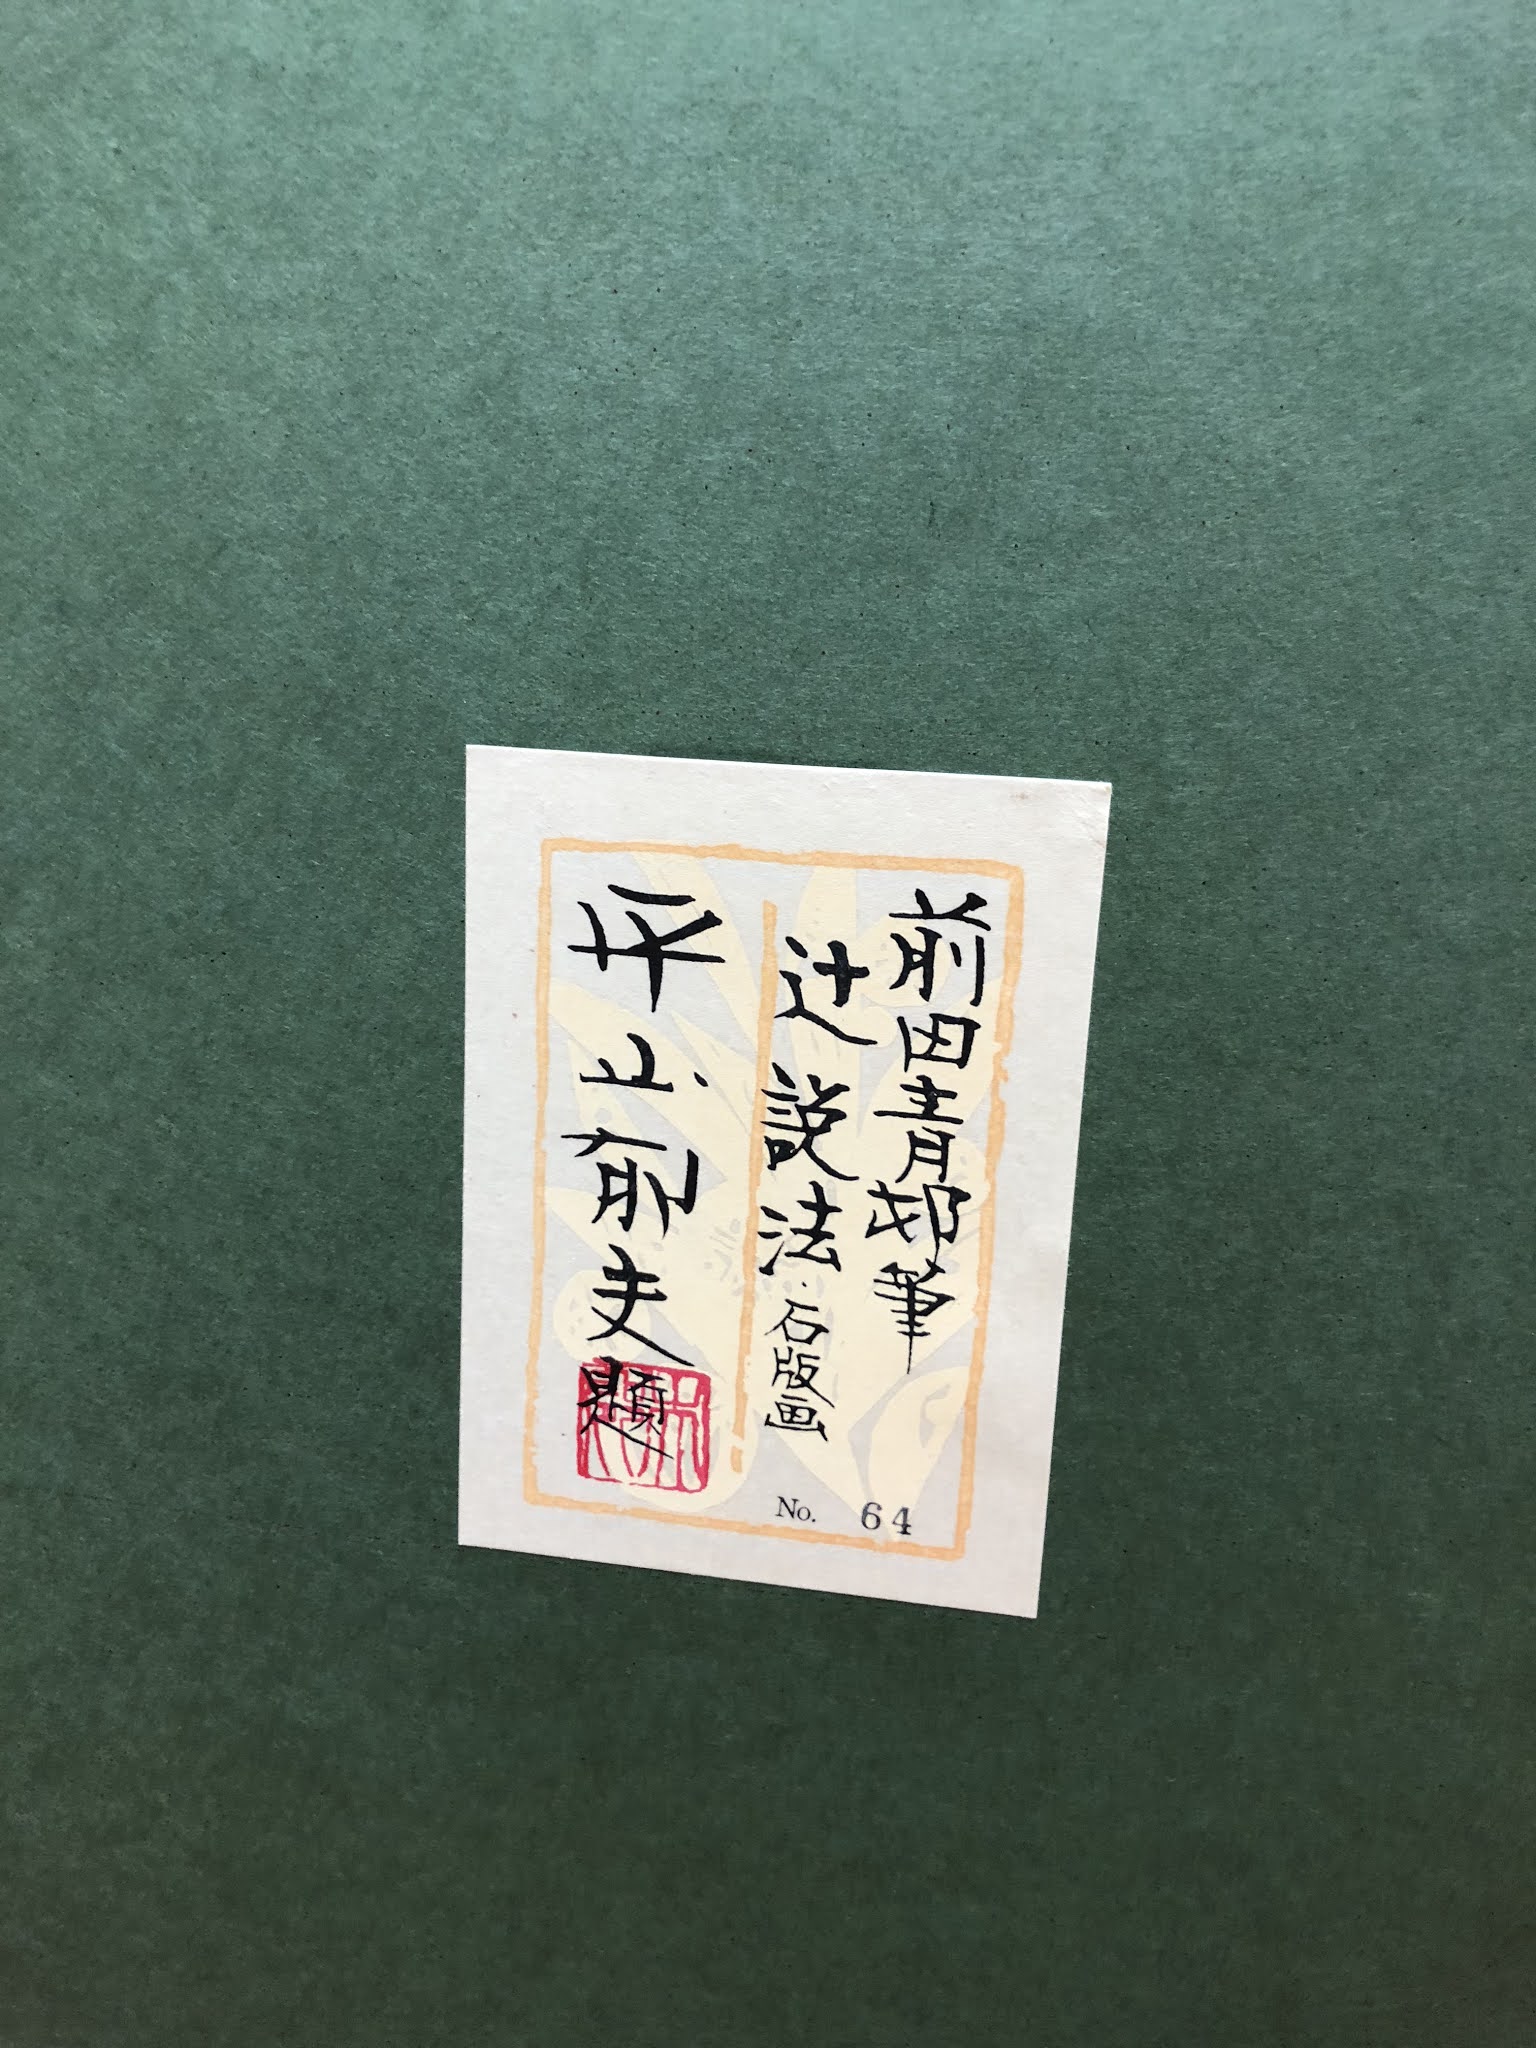 前田青邨筆
辻説法・石版画
平山郁夫題
No. 64